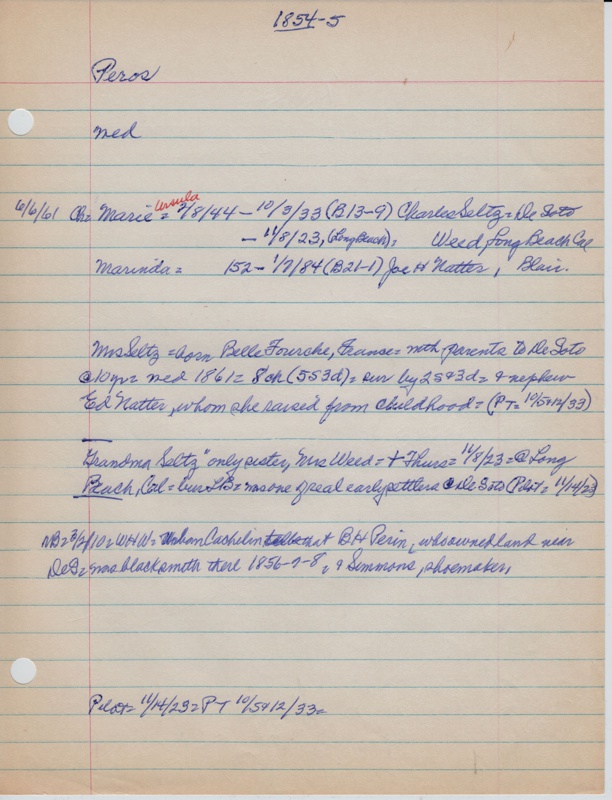 1854-5
Peros
med
6/6/61 Ch= Marie Ursula = 2/8/44 - 10/3/33 (B13-9) Charles Seltz = De Soto
- 11/8/23, (Long Beach) = Weed Long Beach Cal
Marinda = 152 - 1/7/84 (B21-1) Joe H Natter, Blair.
Mrs Seltz = born Belle Fourche, France = with parents to De Soto
@ 10 yr = med 1861 = 8 ch (5S3d) = sur by 2S & 3d = & nephew
Ed Natter, whom she raised from childhood = (PT = 10/5&12/33)
Grandma Seltz" only sister, Mrs Weed = + Thurs = 11/8/23 = @ Long
Beach, Cal = bur LB = was one of real early settlers @ De Soto (Pilot = 11/14/23)
NB = 3/2/10 = WHW = Cachelin that BH Perin, who owned land near
DeS = was blacksmith there 1856-7-8, = & Simmons, shoemaker,
Pilot = 11/14/23 = PT 10/5&12/33 =